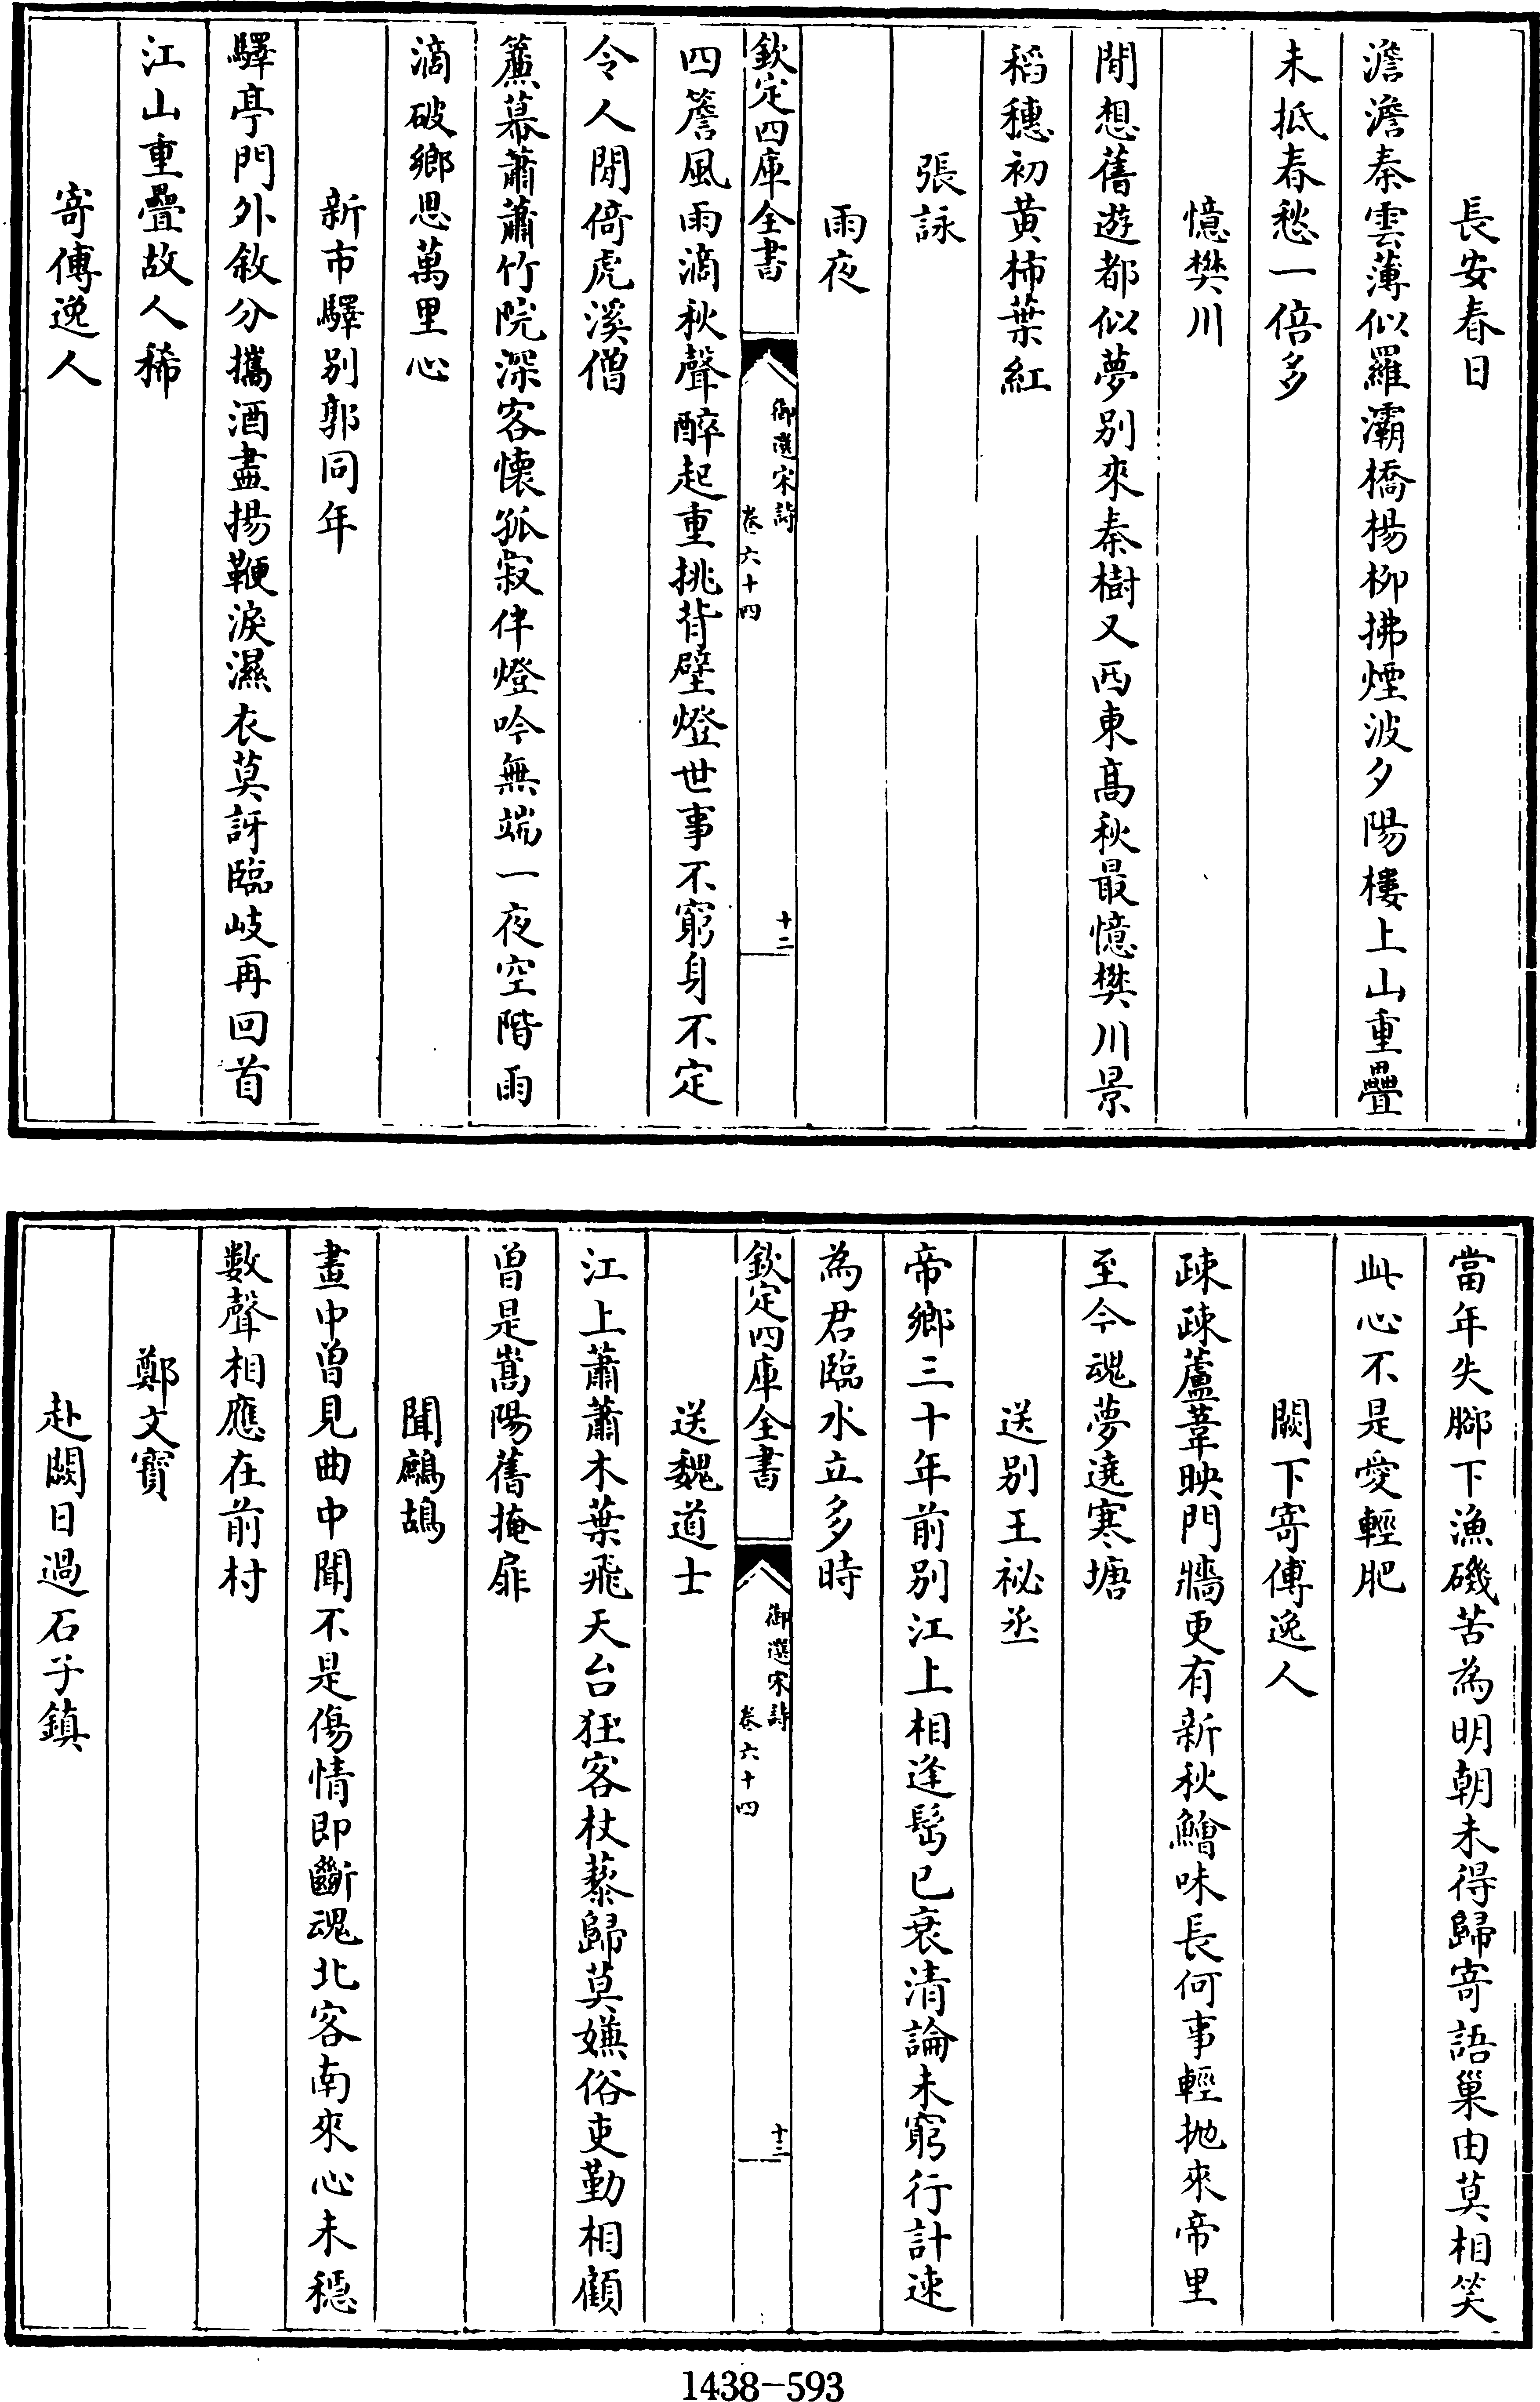 長安春日
澹澹秦雲薄似羅灞橋楊柳拂煙波夕陽樓上山重疊
未抵春愁一倍多
憶樊川
閒想舊遊都似夢別來秦樹又西東髙秋最憶樊川景
稻穗初黄柿葉紅
張詠
雨夜
欽定四庫全書
御選宋詩
卷六十四
十二
四簷風雨滴秋聲醉起重挑背壁燈世事不窮身不定
令人閒倚虎溪僧
簾幕蕭蕭竹院深客懷孤寂伴燈吟無端一夜空階雨
滴破鄉思萬里心
新市驛別郭同年
驛亭門外敘分攜酒盡揚鞭淚濕衣莫訝臨岐再回首
江山重疊故人稀
寄傅逸人
當年失腳下漁磯苦為明朝未得歸寄語巢由莫相笑
此心不是愛輕肥
闕下寄傅逸人
疎疎蘆葦映門牆更有新秋鱠味長何事輕拋來帝里
至今魂夢遶寒塘
送別王祕丞
帝鄉三十年前別江上相逢髩已衰清論未窮行計速
為君臨水立多時
欽定四庫全書
御選宋詩
卷六十四
十三
送魏道士
江上蕭蕭木葉飛天台狂客杖藜歸莫嫌俗吏勤相顧
曽是嵩陽舊掩扉
聞鷓鴣
畫中曽見曲中聞不是傷情即斷魂北客南來心未穩
数聲相應在前村
鄭文寳
赴闕日過石子鎮
1438-593